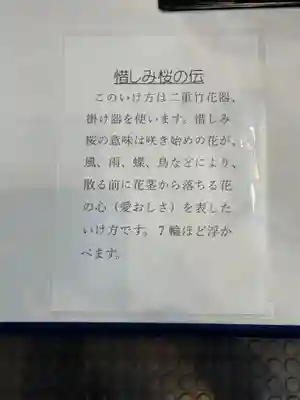 惜しみ桜の伝
このいけ方は二重竹花器、
掛け器を使います。惜しみ
桜の意味は咲き始めの花が、
風、雨、蝶、鳥などにより、
散る前に花茎から落ちる花
の心（愛おしさ）を表した
いけ方です。７輪ほど浮か
べます。